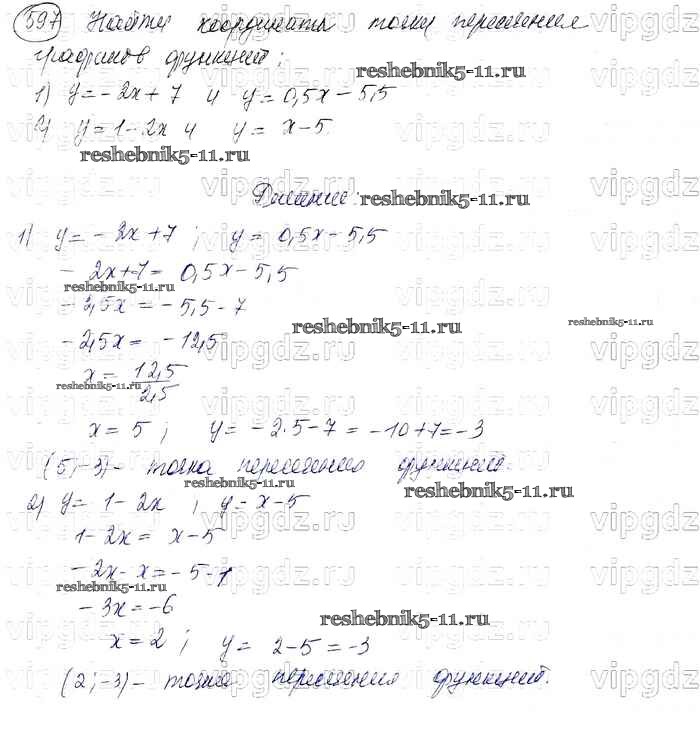 597 Найти координаты точки пересечения
графиков функций:
1) y = -2x + 7 и y = 0,5x - 5,5
2) y = 1 - 2x и y = x - 5
Решение:
1) y = -2x + 7 ; y = 0,5x - 5,5
- 2x + 7 = 0,5x - 5,5
- 2,5x = - 5,5 - 7
- 2,5x = - 12,5
x = 12,5 / 2,5
x = 5 ; y = - 2·5 - 7 = -10 + 7 = -3
(5; -3) - точка пересечения функций.
2) y = 1 - 2x ; y = x - 5
1 - 2x = x - 5
- 2x - x = - 5 - 1
- 3x = -6
x = 2 ; y = 2 - 5 = -3
(2; -3) - точка пересечения функций.
reshebnik5-11.ru
reshebnik5-11.ru
reshebnik5-11.ru
reshebnik5-11.ru
reshebnik5-11.ru
reshebnik5-11.ru
reshebnik5-11.ru
reshebnik5-11.ru
reshebnik5-11.ru
reshebnik5-11.ru
reshebnik5-11.ru
vipgdz.ru